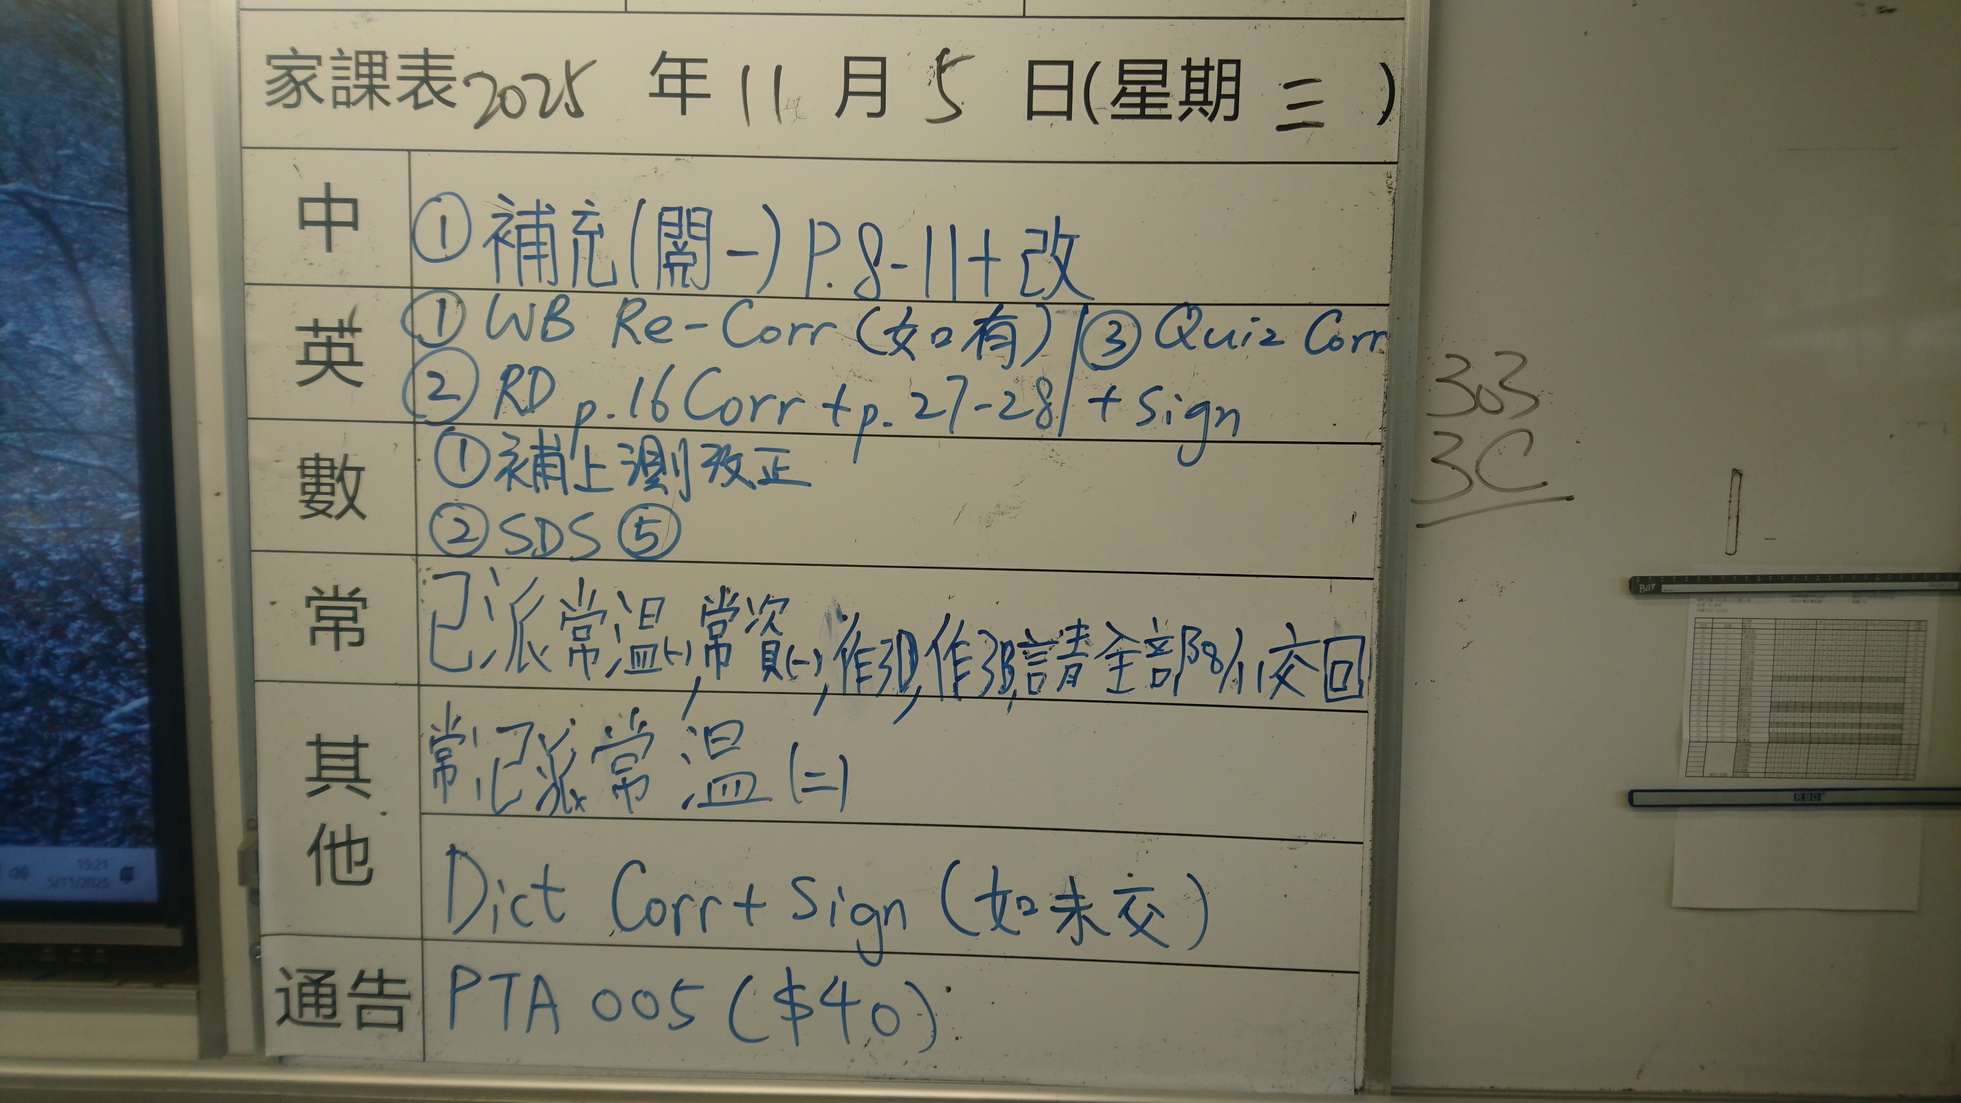 家課表 2025 年 11 月 5 日(星期 三 )
中
① 補充(閱一) P.8-11+改
英
① WB Re-Corr (如有) ③ Quiz Corr
② RD p.16 Corr + p.27-28 + sign
數
① 補上測改正
② SDS ⑤
常
已派常溫(一),常資(一),作3D,作3B,請全部8/11交回
其他
常:已派常溫(二)
Dict Corr + Sign (如未交)
通告
PTA 005 ($40)
303
3C
15:21
5/11/2025